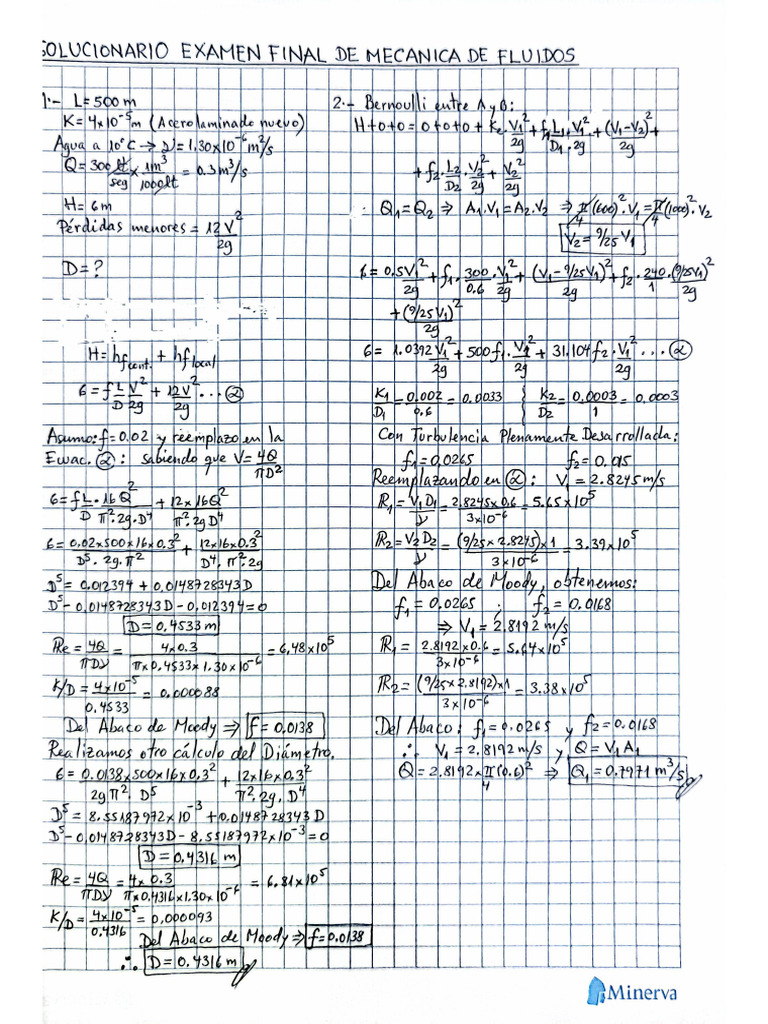 SOLUCIONARIO EXAMEN FINAL DE MECANICA DE FLUIDOS
1.- L=500m
K=4×10⁻⁵m (Acero laminado nuevo)
Agua a 10°C → ν=1.30×10⁻⁶m²/s
Q=300 lt/seg × 1m³/1000lt = 0.3m³/s
H=6m
Pérdidas menores = 12V²/2g
D=?
H=hf cont. + hf local
6=f L/D V²/2g + 12V²/2g ... (α)
Asumo: f=0.02 y reemplazo en la
Ewac. (α): sabiendo que V=4Q/πD²
6=f L/D · 16Q²/π²·2g·D⁴ + 12×16Q²/π²·2g D⁴
6=0.02×500×16×0.3²/D⁵·2g·π² + 12×16×0.3²/D⁴·π²·2g
D⁵=0.012394+0.0148728343D
D⁵-0.0148728343D-0.012394=0
D=0.4533m
Re=4Q/πDν = 4×0.3/π×0.4533×1.30×10⁻⁶ = 6.48×10⁵
K/D=4×10⁻⁵/0.4533 = 0.000088
Del Abaco de Moody ⇒ f=0.0138
Realizamos otro cálculo del Diámetro.
6=0.0138×500×16×0.3²/2gπ²·D⁵ + 12×16×0.3²/π²·2g·D⁴
D⁵=8.55187972×10⁻³+0.0148728343D
D⁵-0.0148728343D-8.55187972×10⁻³=0
D=0.4316m
Re=4Q/πDν = 4×0.3/π×0.4316×1.30×10⁻⁶ = 6.81×10⁵
K/D=4×10⁻⁵/0.4316 = 0.000093
Del Abaco de Moody ⇒ f=0.0138
∴ D=0.4316m
2.- Bernoulli entre A y B:
H+0+0=0+0+0+Ke·V₁²/2g+f₁·L₁/D₁·V₁²/2g+(V₁-V₂)²/2g+
+f₂·L₂/D₂·V₂²/2g+V₂²/2g
∴ Q₁=Q₂ ⇒ A₁·V₁=A₂·V₂ ⇒ π/4(600)²·V₁=π/4(1000)²·V₂
V₂=9/25V₁
6=0.5V₁²/2g+f₁·300/0.6·V₁²/2g+(V₁-9/25V₁)²/2g+f₂·240/1·(9/25V₁)²/2g
+(9/25V₁)²/2g
6=1.0392V₁²/2g+500f₁·V₁²/2g+31.104f₂·V₁²/2g ... (α)
K₁/D₁=0.002/0.6=0.0033 } K₂/D₂=0.0003/1=0.0003
Con Turbulencia Plenamente Desarrollada:
f₁=0.0265 f₂=0.015
Reemplazando en (α): V₁=2.8245m/s
R₁=V₁D₁/ν=2.8245×0.6/3×10⁻⁶=5.65×10⁵
R₂=V₂D₂/ν=(9/25×2.8245)×1/3×10⁻⁶=3.39×10⁵
Del Abaco de Moody, obtenemos:
f₁=0.0265 ; f₂=0.0168
⇒ V₁=2.8192m/s
R₁=2.8192×0.6/3×10⁻⁶=5.64×10⁵
R₂=(9/25×2.8192)×1/3×10⁻⁶=3.38×10⁵
Del Abaco: f₁=0.0265 y f₂=0.0168
∴ V₁=2.8192m/s y Q=V₁A₁
Q=2.8192×π/4(0.6)² ⇒ Q₁=0.7971m³/s
Minerva